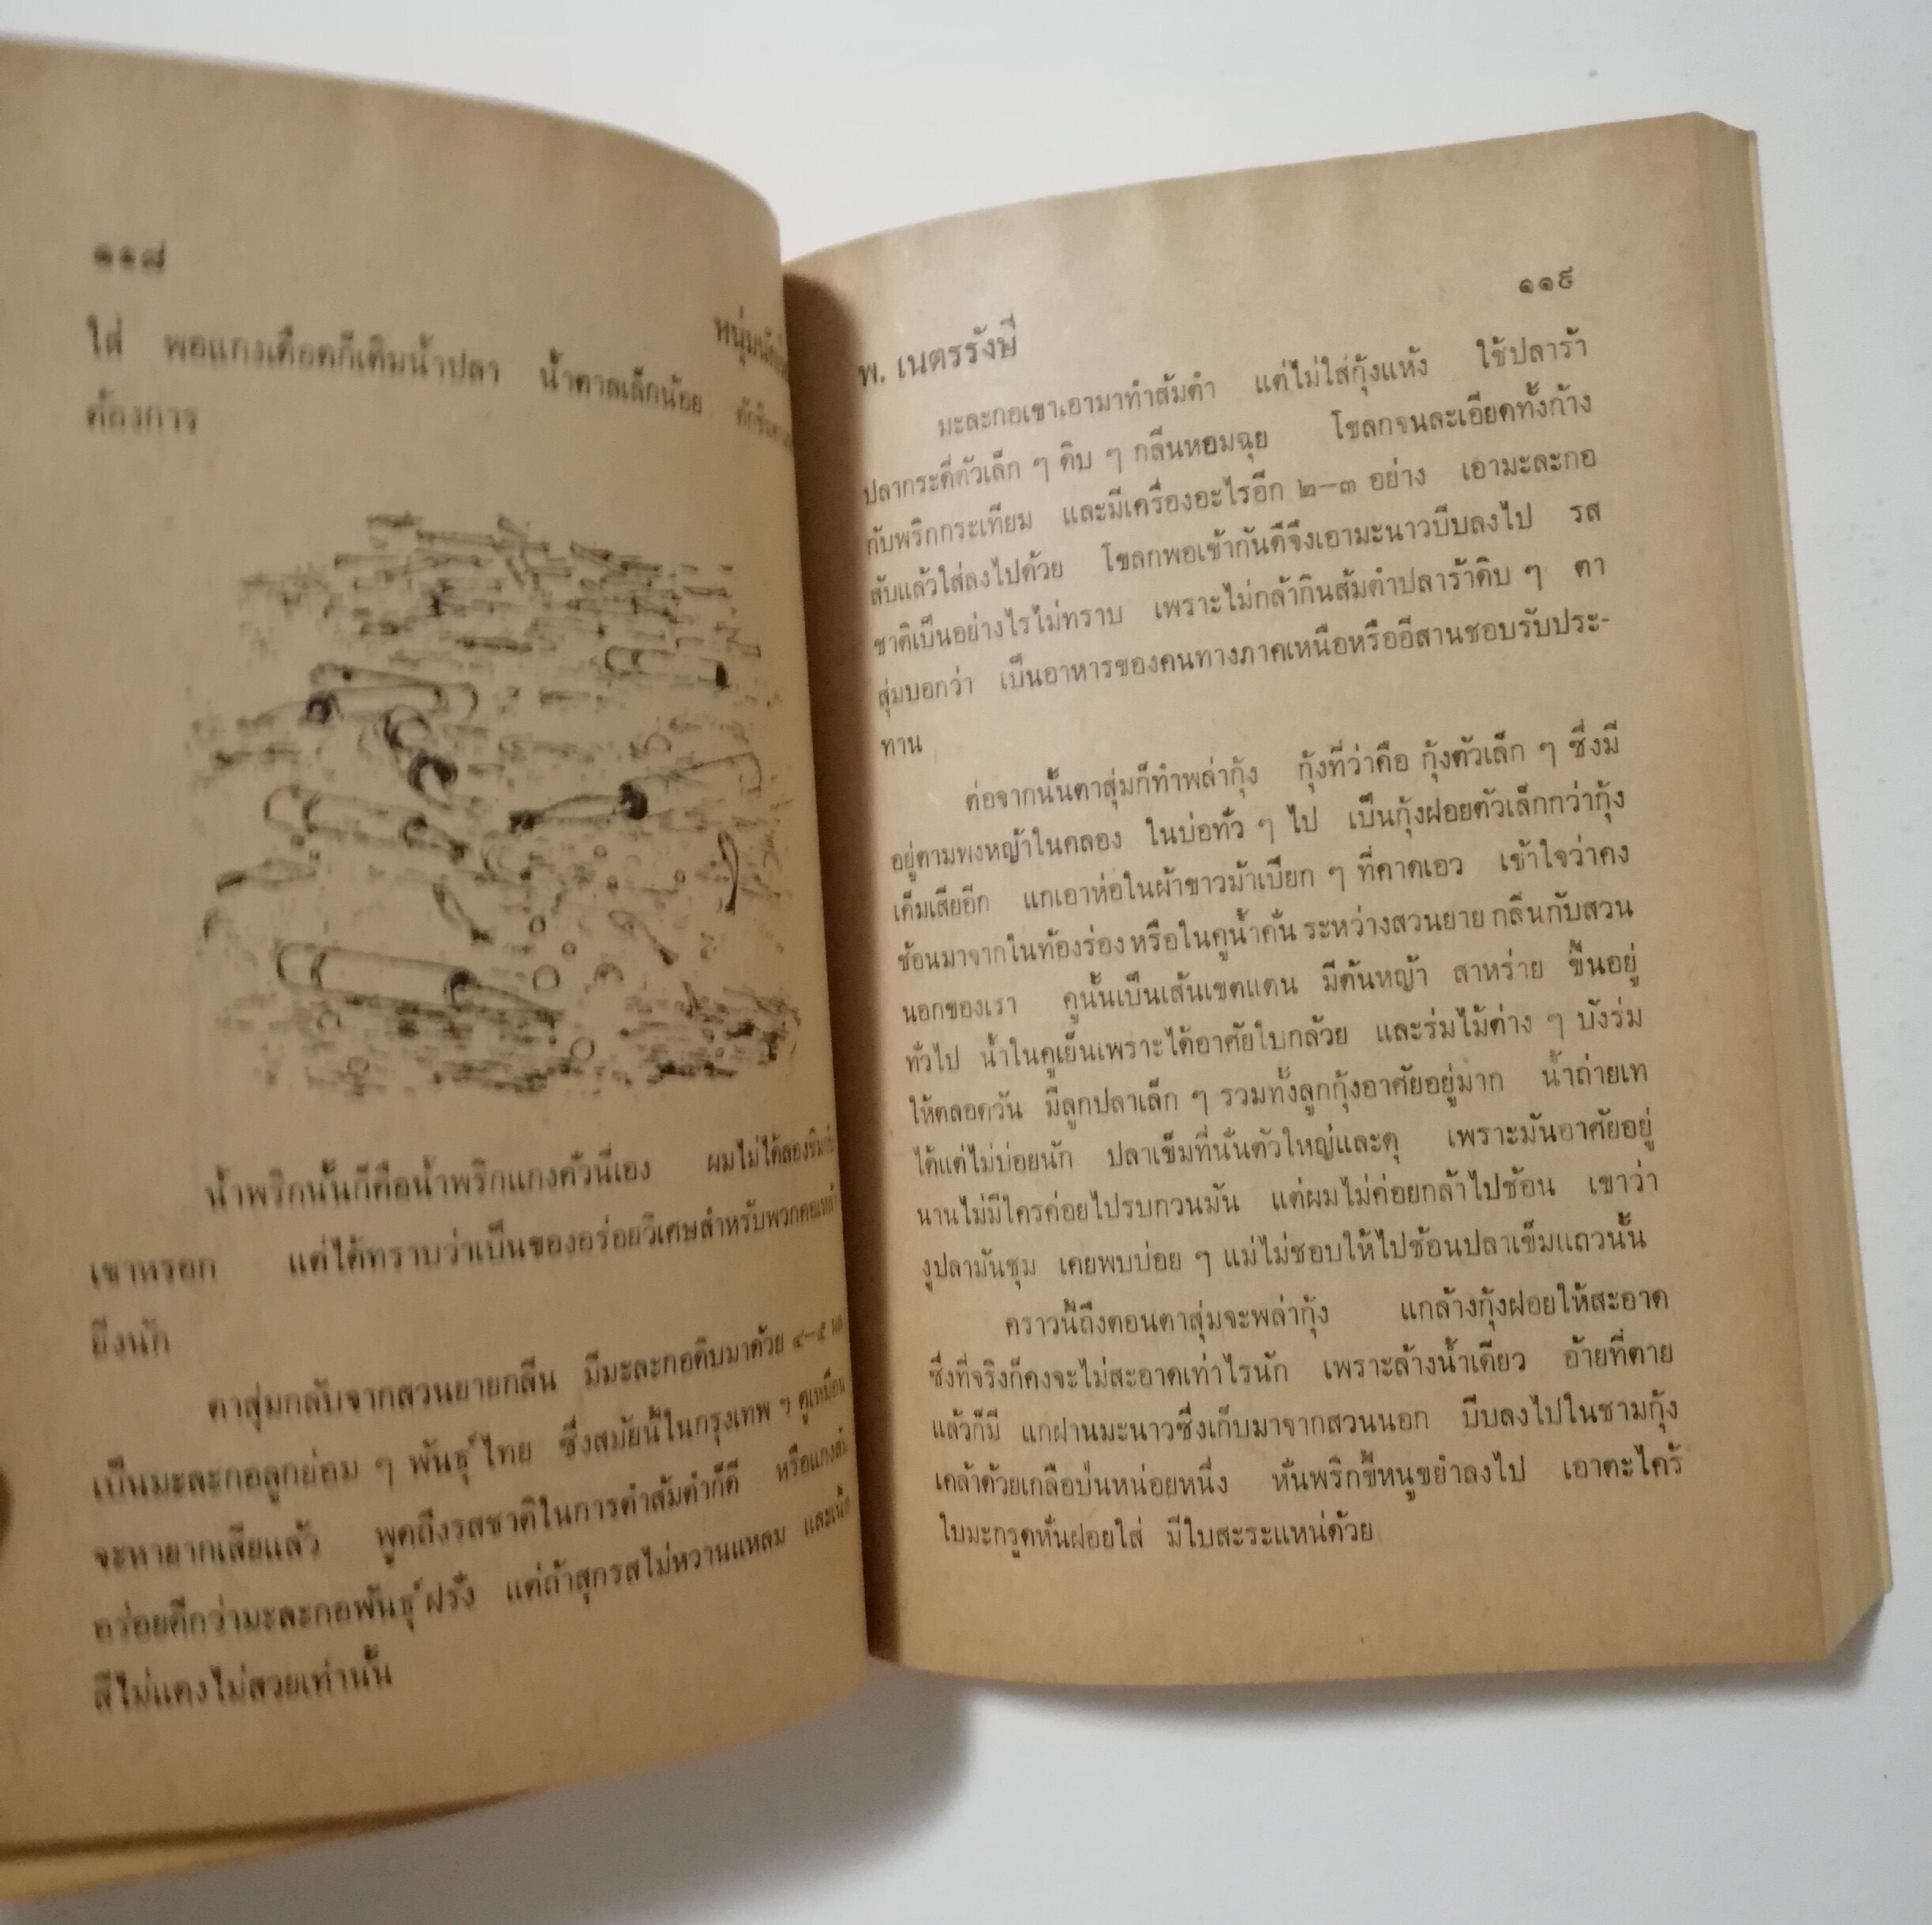 ๑๑๘
ใส่ พอแกงเดือดก็เติมน้ำปลา น้ำตาลเล็กน้อย
ต้องการ
น้ำพริกนั้นก็คือน้ำพริกแกงคั่วนี่เอง ผมไม่ได้ลองชิม
เขาหรอก แต่ได้ทราบว่าเป็นของอร่อยวิเศษสำหรับพวกคอเหล้า
ยิ่งนัก
ตาสุ่มกลับจากสวนยายกลีน มีมะละกอดิบมาด้วย ๔–๕
เป็นมะละกอลูกย่อม ๆ พันธุ์ไทย ซึ่งสมัยนี้ในกรุงเทพ ๆ ดูเหมือน
จะหายากเสียแล้ว พูดถึงรสชาติในการตำส้มตำก็ดี หรือแกงส้ม
อร่อยดีกว่ามะละกอพันธุ์ฝรั่ง แต่ถ้าสุกรสไม่หวานแหลม และเนื้อ
สีไม่แดงไม่สวยเท่านั้น
๑๑๙
พ. เนตรรังษี
มะละกอเขาเอามาทำส้มตำ แต่ไม่ใส่กุ้งแห้ง ใช้ปลาร้า
ปลากระดี่ตัวเล็ก ๆ ดิบ ๆ กลิ่นหอมฉุย โขลกจนละเอียดทั้งก้าง
กับพริกกระเทียม และมีเครื่องอะไรอีก ๒–๓ อย่าง เอามะละกอ
สับแล้วใส่ลงไปด้วย โขลกพอเข้ากันดีจึงเอามะนาวบีบลงไป รส
ชาติเป็นอย่างไรไม่ทราบ เพราะไม่กล้ากินส้มตำปลาร้าดิบ ๆ ตา
สุ่มบอกว่า เป็นอาหารของคนทางภาคเหนือหรืออีสานชอบรับประ-
ทาน
ต่อจากนั้นตาสุ่มก็ทำพล่ากุ้ง กุ้งที่ว่าคือ กุ้งตัวเล็ก ๆ ซึ่งมี
อยู่ตามพงหญ้าในคลอง ในบ่อทั่ว ๆ ไป เป็นกุ้งฝอยตัวเล็กกว่ากุ้ง
เค็มเสียอีก แกเอาห่อในผ้าขาวม้าเปียก ๆ ที่คาดเอว เข้าใจว่าคง
ช้อนมาจากในท้องร่อง หรือในคูน้ำคั่น ระหว่างสวนยาย กลีนกับสวน
นอกของเรา คูนั้นเป็นเส้นเขตแดน มีต้นหญ้า สาหร่าย ขึ้นอยู่
ทั่วไป น้ำในคูเย็นเพราะได้อาศัยใบกล้วย และร่มไม้ต่าง ๆ บังร่ม
ให้ตลอดวัน มีลูกปลาเล็ก ๆ รวมทั้งลูกกุ้งอาศัยอยู่มาก น้ำถ่ายเท
ได้แต่ไม่บ่อยนัก ปลาเข็มที่นั่นตัวใหญ่และดุ เพราะมันอาศัยอยู่
นานไม่มีใครค่อยไปรบกวนมัน แต่ผมไม่ค่อยกล้าไปช้อน เขาว่า
งูปลามันชุม เคยพบบ่อย ๆ แม่ไม่ชอบให้ไปช้อนปลาเข็มแถวนั้น
คราวนี้ถึงตอนตาสุ่มจะพล่ากุ้ง แกล้างกุ้งฝอยให้สะอาด
ซึ่งที่จริงก็คงจะไม่สะอาดเท่าไรนัก เพราะล้างน้ำเดียว อ้ายที่ตาย
แล้วก็มี แกฝานมะนาวซึ่งเก็บมาจากสวนนอก บีบลงไปในชามกุ้ง
เคล้าด้วยเกลือป่นหน่อยหนึ่ง หั่นพริกขี้หนูขยำลงไป เอาตะไคร้
ใบมะกรูดหั่นฝอยใส่ มีใบสะระแหน่ด้วย